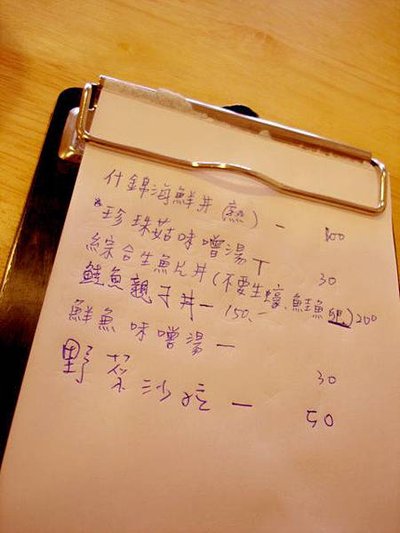 什錦海鮮丼(熟) 一
珍珠菇味噌湯 T 30
綜合生魚片丼(不要生蠔.鮭魚卵)200
鮭魚親子丼一 150.
鮮魚味噌湯一 30
野菜沙拉 一 50